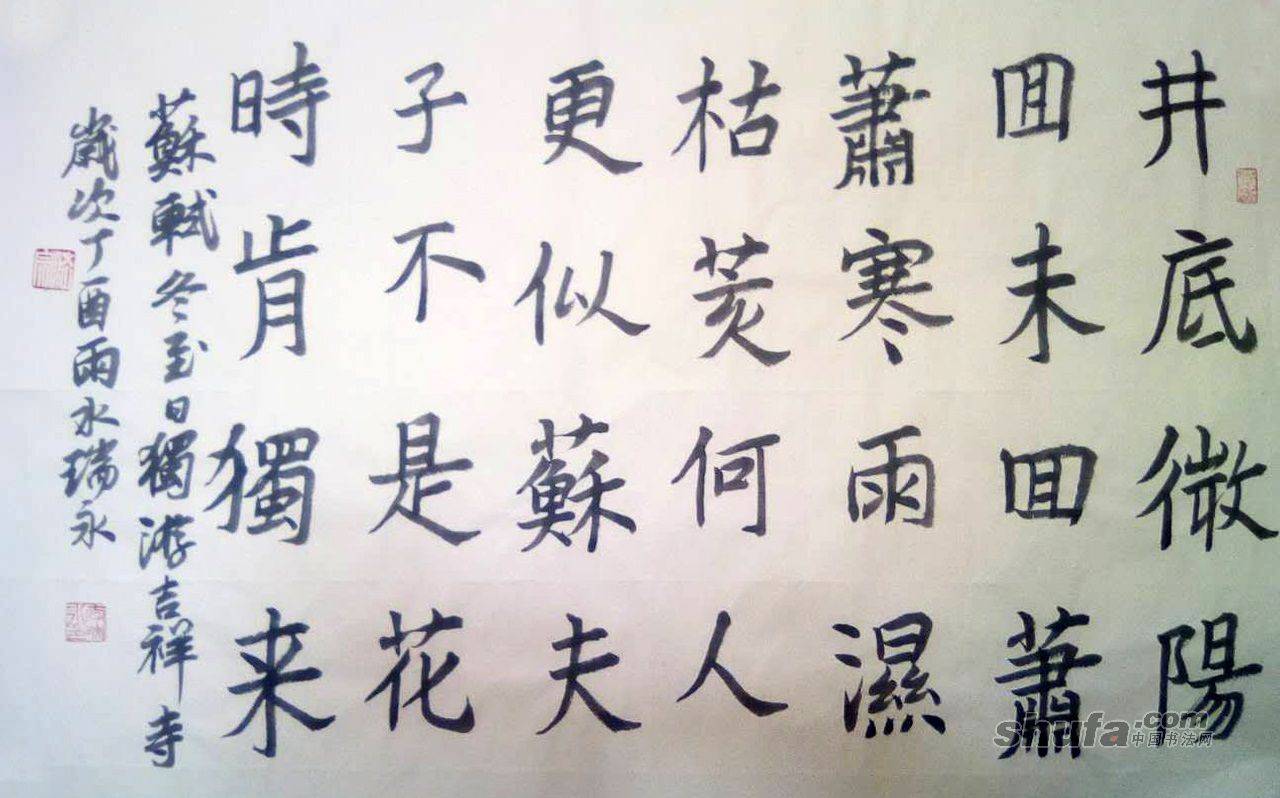 井底微陽
囬未囬蕭
蕭寒雨濕
枯荄何人
更似蘇夫
子不是花
時肯獨来
蘇軾冬至日獨游吉祥寺
歲次丁酉雨水瑞永
shufa.com
中国书法网